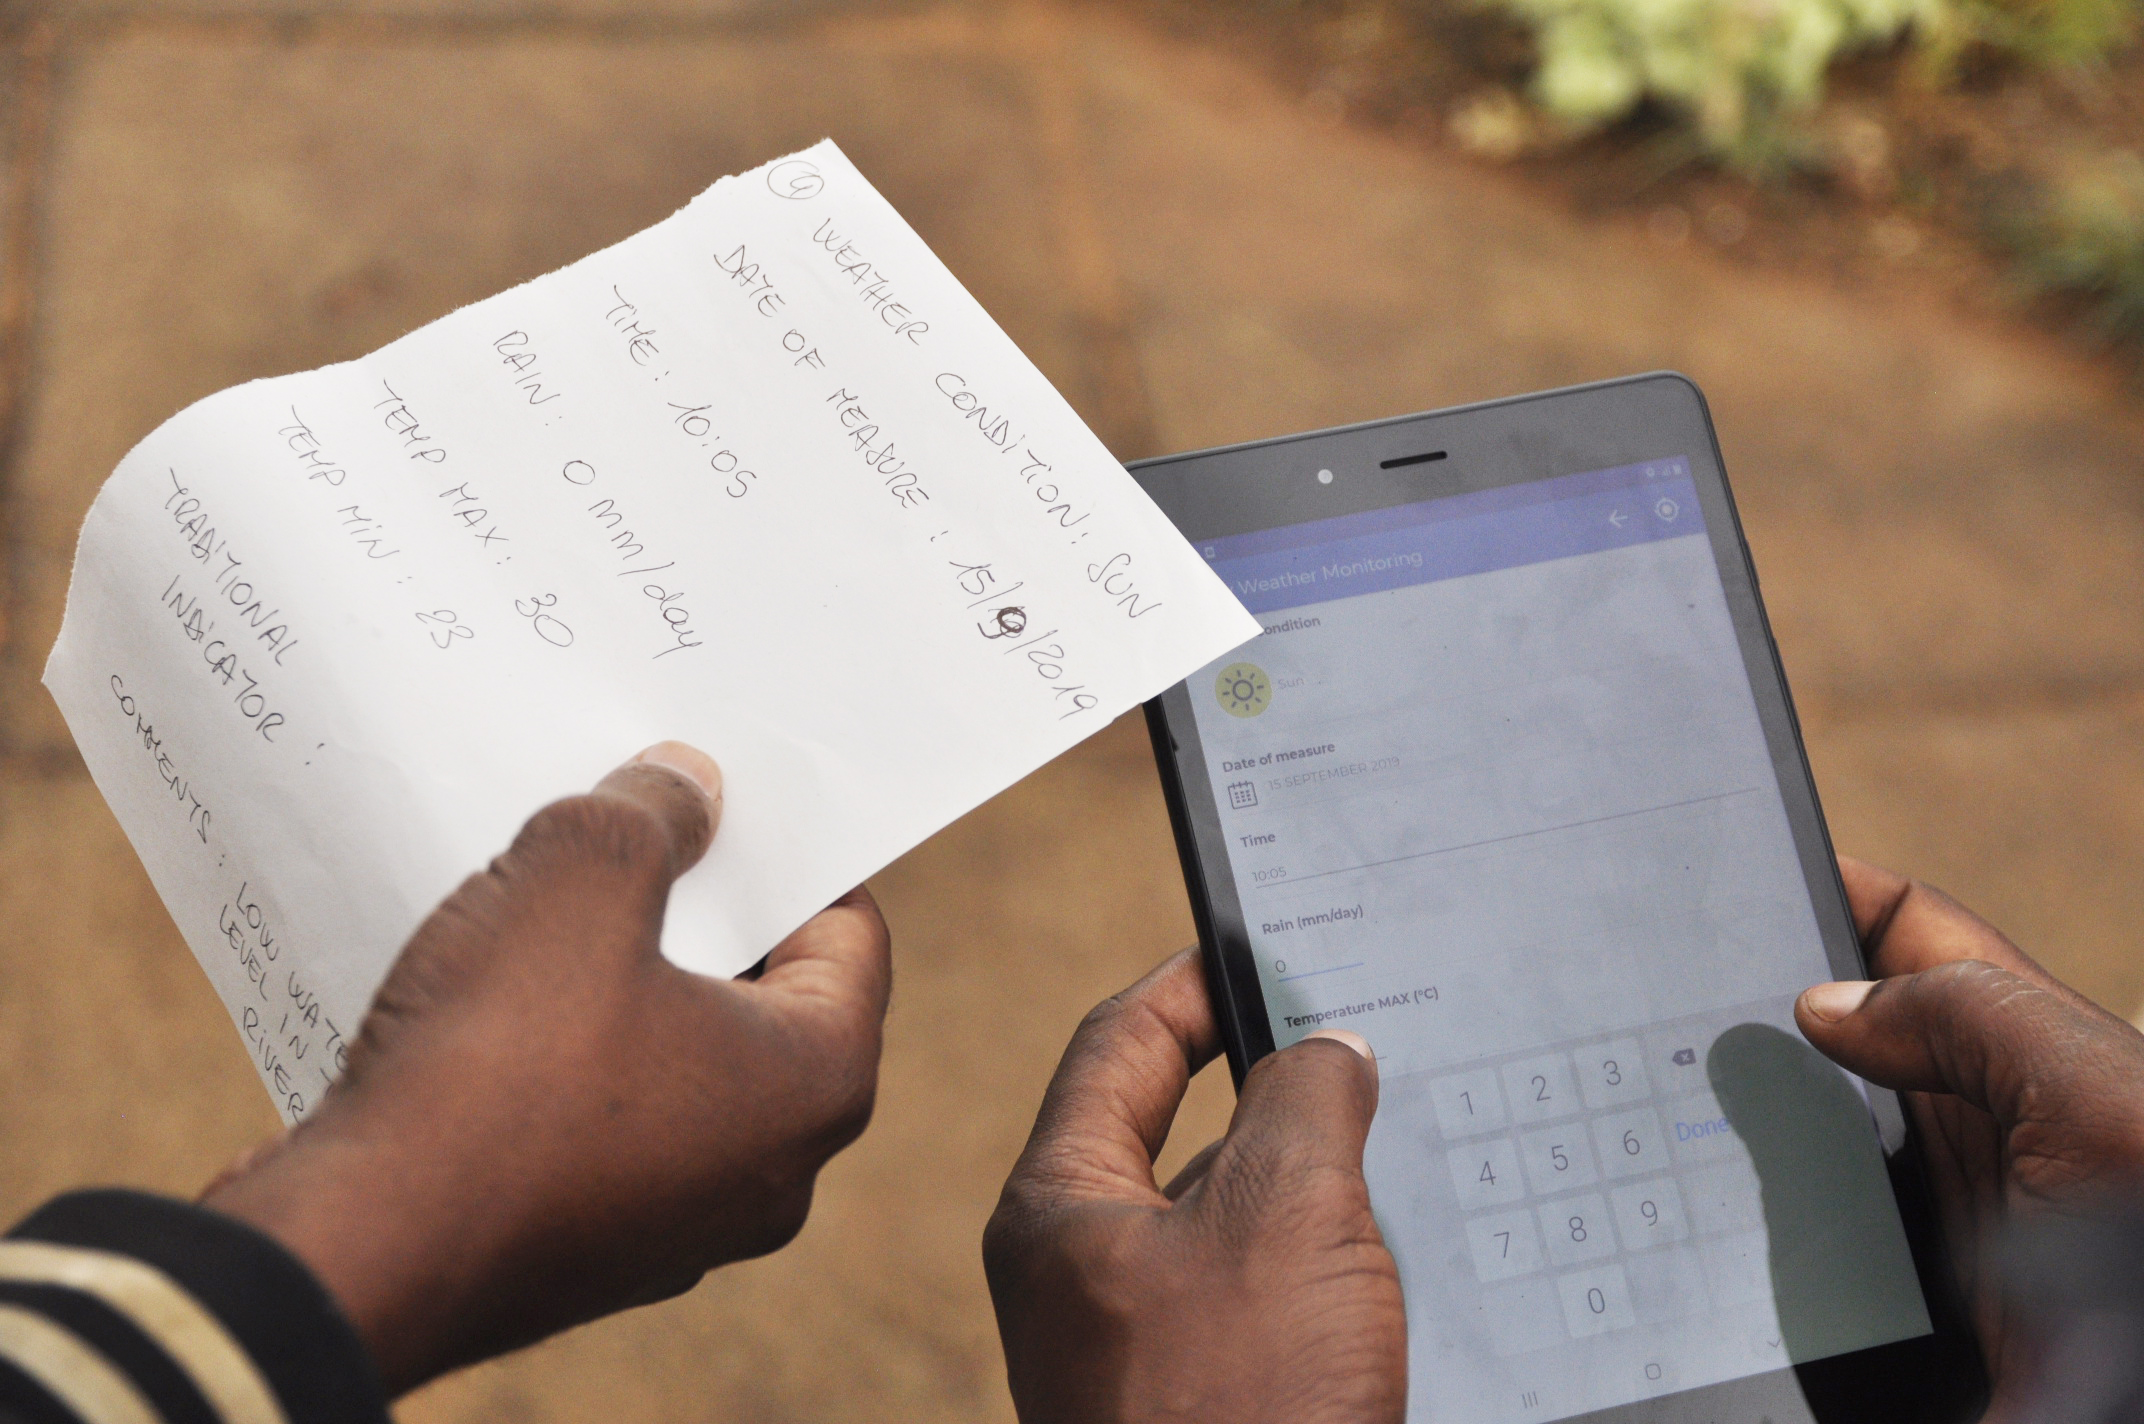 4
WEATHER CONDITION: SUN
DATE OF MEASURE: 15/9/2019
TIME: 10:05
RAIN: 0 mm/day
TEMP MAX: 30
TEMP MIN: 23
TRADITIONAL
INDICATOR:
COMMENTS: LOW WATE
LEVEL IN
RIVER
Weather Monitoring
ondition
Sun
Date of measure
15 SEPTEMBER 2019
Time
10:05
Rain (mm/day)
0
Temperature MAX (°C)
1 2 3
4 5 6 Done
7 8 9 .
0